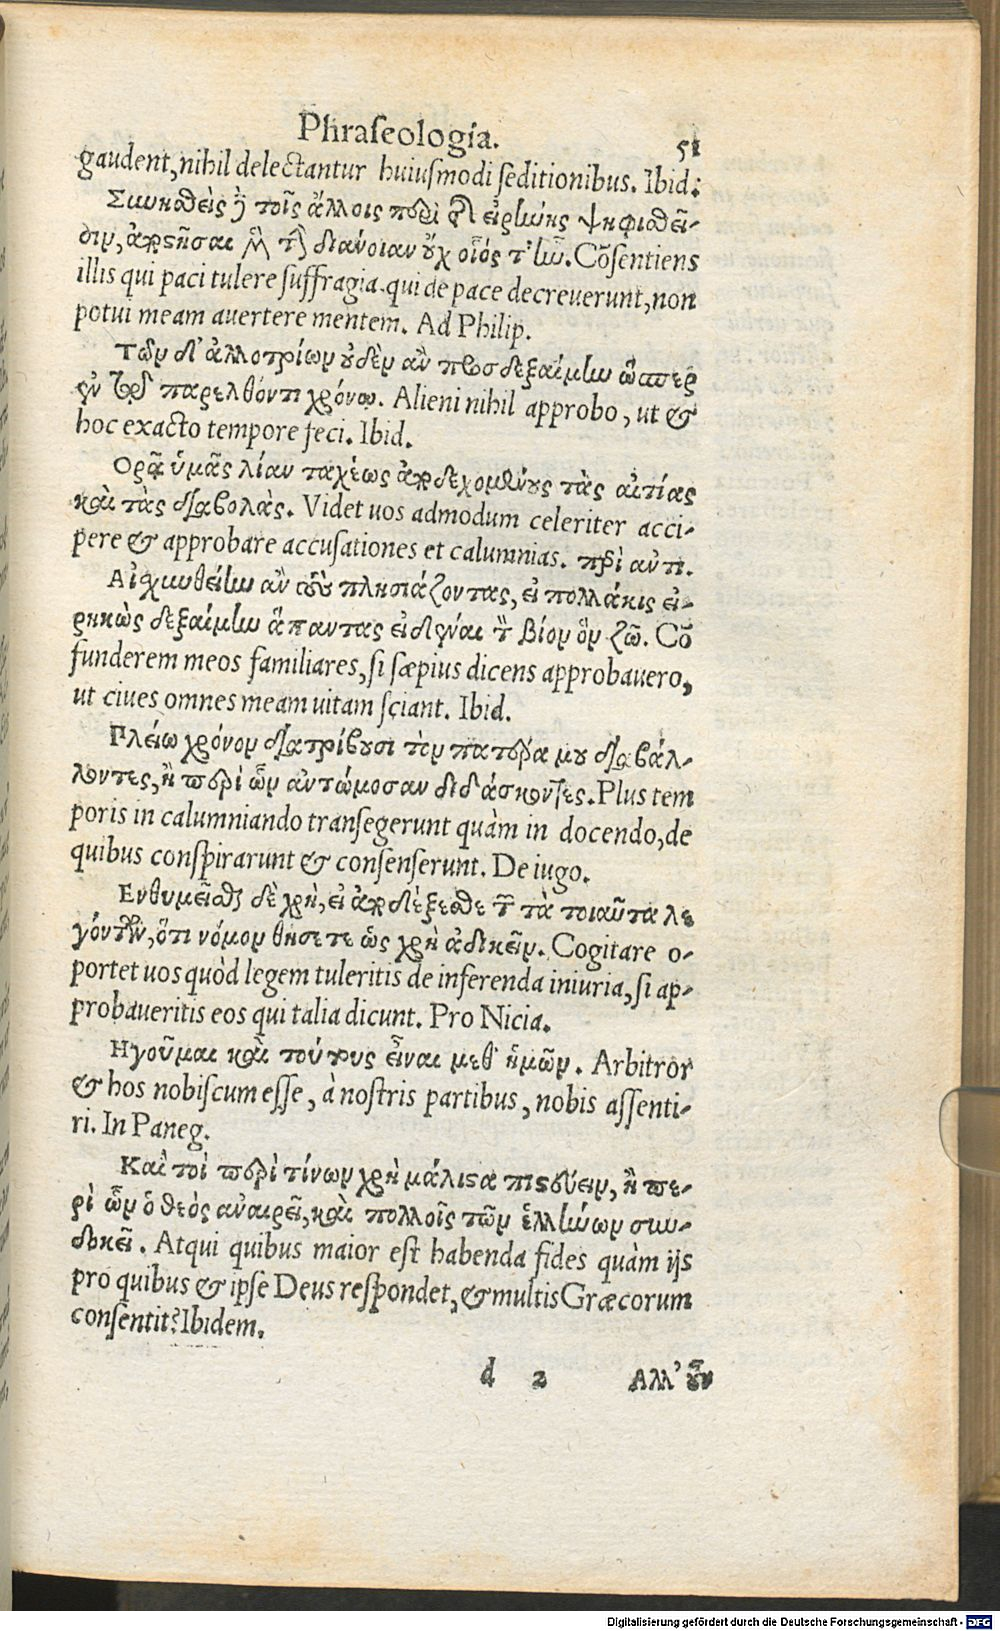 Phraseologia. 51
gaudent, nihil delectantur huiusmodi seditionibus. Ibid:
τοῖς ἄλλοις περὶ εἰρήνης ψηφισθεῖ-
σιν, διάνοιαν οὐχ οἷός τ' ἦν. Cōsentiens
illis qui paci tulere suffragia. qui de pace decreverunt, non
potui meam avertere mentem. Ad Philip.
Τῶν δ' ἀλλοτρίων οὐδὲν ἂν προσδεξαίμην ὥσπερ
παρελθόντι χρόνῳ. Alieni nihil approbo, ut &
hoc exacto tempore feci. Ibid.
Ορᾷ ὑμᾶς λίαν ταχέως ἀποδεχομένους τὰς αἰτίας
καὶ τὰς διαβολὰς. Videt uos admodum celeriter acci-
pere & approbare accusationes et calumnias. περὶ ἀντι.
Αἰσχυνθείην ἂν τοὺς πλησιάζοντας, εἰ πολλάκις εἰ-
ρηκὼς δεξαίμην ἅπαντας εἰδέναι τὸν βίον ὃν ζῶ. Cō
funderem meos familiares, si sæpius dicens approbauero,
ut ciues omnes meam uitam sciant. Ibid.
Πλείω χρόνον διατρίβουσι τὸν πατέρα μου διαβάλ-
λοντες, ἢ περὶ ὧν ἀντώμοσαν διδάσκοντες. Plus tem
poris in calumniando transegerunt quàm in docendo, de
quibus conspirarunt & consenserunt. De iugo.
Ενθυμεῖσθαι δὲ χρὴ, εἰ ἀποδέξεσθε τῶν τὰ τοιαῦτα λε
γόντων, ὅτι νόμον θήσετε ὡς χρὴ ἀδικεῖν. Cogitare o-
portet uos quòd legem tuleritis de inferenda iniuria, si ap-
probaueritis eos qui talia dicunt. Pro Nicia.
Ηγοῦμαι καὶ τούτους εἶναι μεθ' ἡμῶν. Arbitror
& hos nobiscum esse, à nostris partibus, nobis assenti-
ri. In Paneg.
Καί τοι περὶ τίνων χρὴ μάλιστα πιστεύειν, ἢ πε-
ρὶ ὧν ὁ θεὸς ἀναιρεῖ, καὶ πολλοῖς τῶν ἑλλήνων συν-
δοκεῖ. Atqui quibus maior est habenda fides quàm ijs
pro quibus & ipse Deus respondet, & multis Græcorum
consentit? Ibidem.
d 2 Αλλ' οὖν
Digitalisierung gefördert durch die Deutsche Forschungsgemeinschaft - DFG